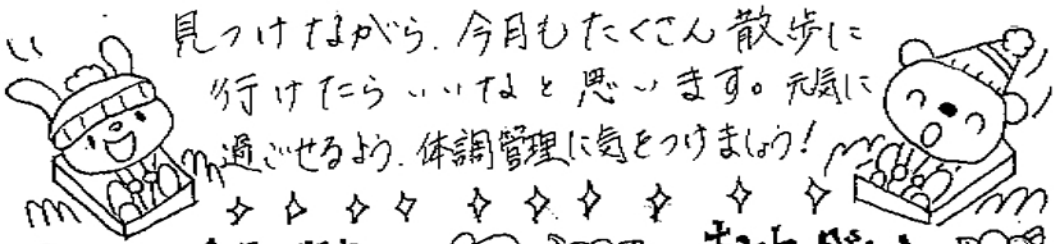 見つけながら、今月もたくさん散歩に
行けたらいいなと思います。元気に
過ごせるよう、体調管理に気をつけましょう!